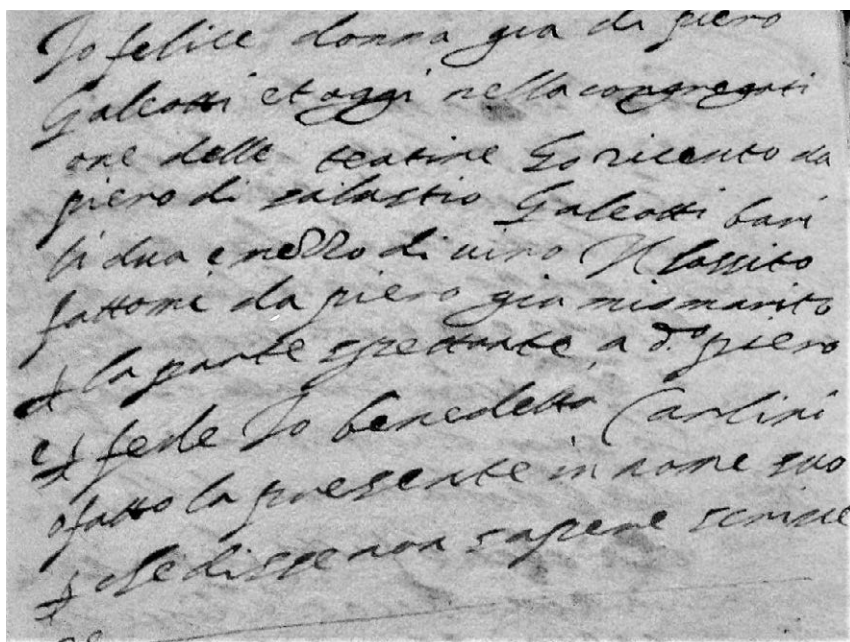 Io felice donna gia di piero
Galeotti et oggi nella congregati
one delle teatine ho riceuto da
piero di salustio Galeotti bari
li dua e mezzo di uino Il lassito
fattomi da piero gia mio marito
p la parte spettante a d.o piero
e p fede Io benedetta Carlini
o fatto la presente in nome suo
p che disse non sapere scriuere